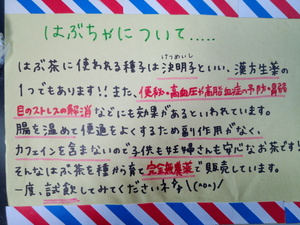 はぶちゃについて.....
はぶ茶に使われる種子は決明子といい、漢方生薬の
けつめいし
1つでもあります!!また、便秘・高血圧や高脂血症の予防・緩和
目のストレスの解消などにも効果があるといわれています。
腸を温めて便通をよくするため副作用がなく、
カフェインを含まないので子供も妊婦さんも安心なお茶です!
そんなはぶ茶を種から育て完全無農薬で販売しています。
一度、試飲してみてくださいネ♪\(^o^)/